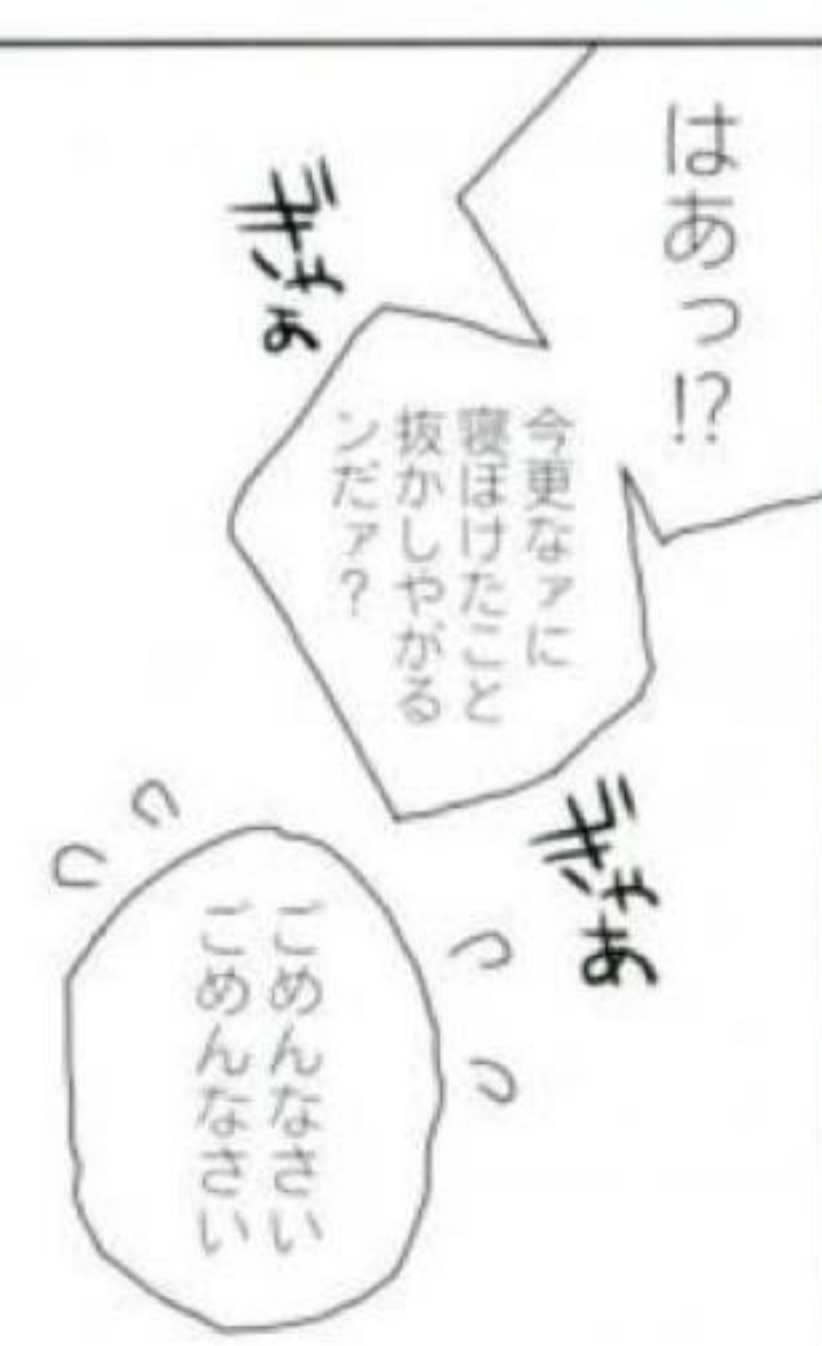 はあっ!?
今更なァに
寝ぼけたこと
抜かしやがる
ンだァ?
ぎゃぁ
ぎゃぁ
ごめんなさい
ごめんなさい